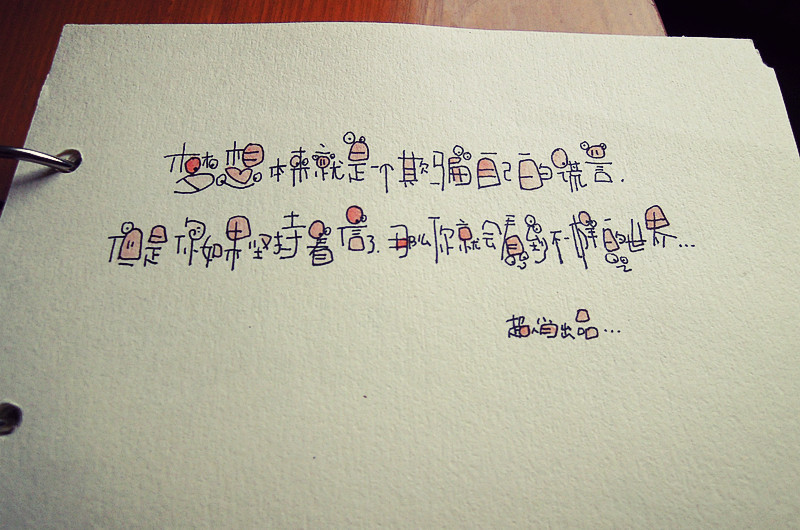 梦想本来就是一个欺骗自己的谎言.
但是你如果坚持着信了.那么你就会看到不一样的世界...
超人出品...